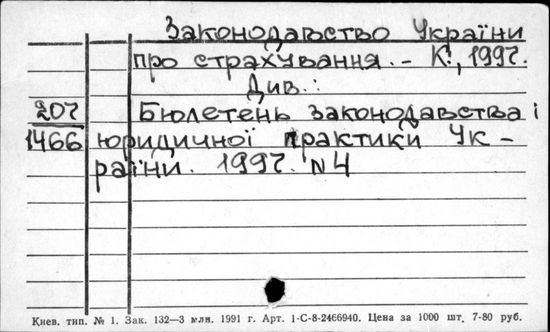 Законодавство України
про страхування. – К., 1997.
Див.:
207
Бюлетень законодавства і
1466 юридичної практики Ук-
раїни. 1997. N4
Киев. тип. № 1. Зак. 132—3 млн. 1991 г. Арт. 1-С-8-2466940. Цена за 1000 шт. 7-80 руб.